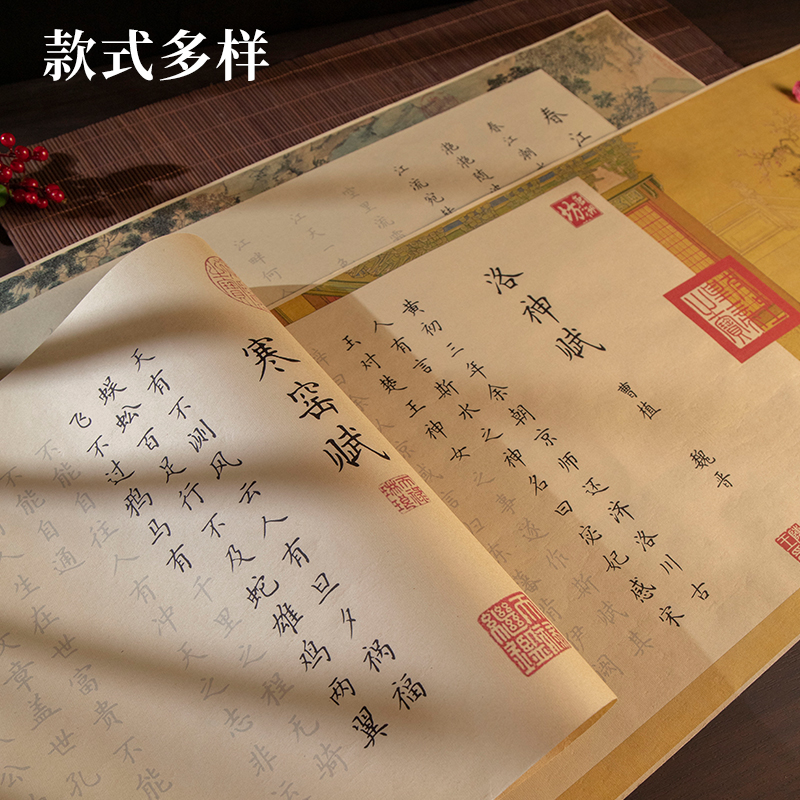 款式多样
春江
春江潮
滟滟随
江流宛
空里流
江天一
江畔何
洛神赋
曹植 魏晋
黄初三年余朝京师还济洛川古
人有言斯水之神名曰宓妃感宋
玉对楚王神女之事遂作斯赋其
寒窑赋
天有不测风云人有旦夕祸福
蜈蚣百足行不及蛇雄鸡两翼
飞不过鸦马有千里之程无骑
不能自往人有冲天之志非运
不能自通
人生在世富贵不能
文章盖世孔